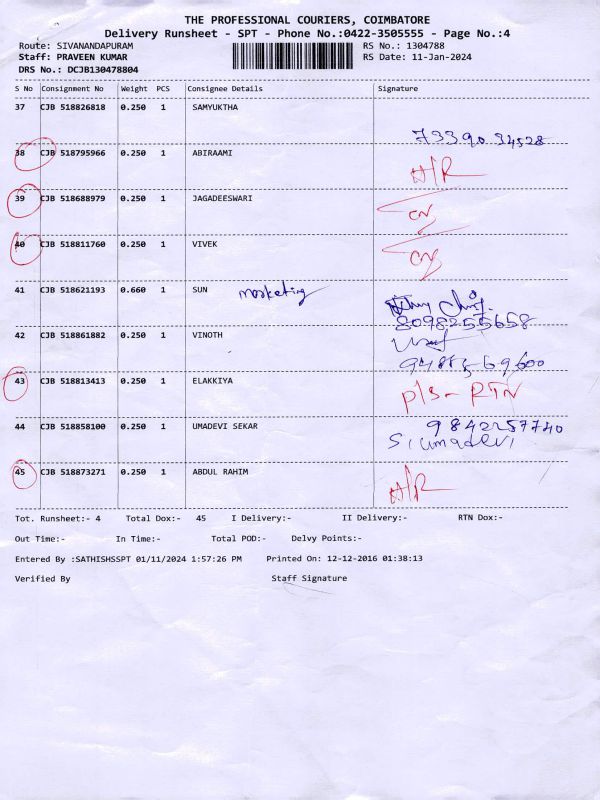 THE PROFESSIONAL COURIERS, COIMBATORE
Delivery Runsheet - SPT - Phone No.:0422-3505555 - Page No.:4
Route: SIVANANDAPURAM RS No.: 1304788
Staff: PRAVEEN KUMAR RS Date: 11-Jan-2024
DRS No.: DCJB130478804
S No Consignment No Weight PCS Consignee Details Signature
37 CJB 518826818 0.250 1 SAMYUKTHA
73390 34528
38 CJB 518795966 0.250 1 ABIRAAMI
A/R
39 CJB 518688979 0.250 1 JAGADEESWARI
CN
40 CJB 518811760 0.250 1 VIVEK
CN
41 CJB 518621193 0.660 1 SUN marketing
8098255658
42 CJB 518861882 0.250 1 VINOTH
43 CJB 518813413 0.250 1 ELAKKIYA
P/S - RTN
44 CJB 518858100 0.250 1 UMADEVI SEKAR 9842257740
S. Umadevi
45 CJB 518873271 0.250 1 ABDUL RAHIM
A/R
Tot. Runsheet:- 4 Total Dox:- 45 I Delivery:- II Delivery:- RTN Dox:-
Out Time:- In Time:- Total POD:- Delvy Points:-
Entered By :SATHISHSSPT 01/11/2024 1:57:26 PM Printed On: 12-12-2016 01:38:13
Verified By Staff Signature